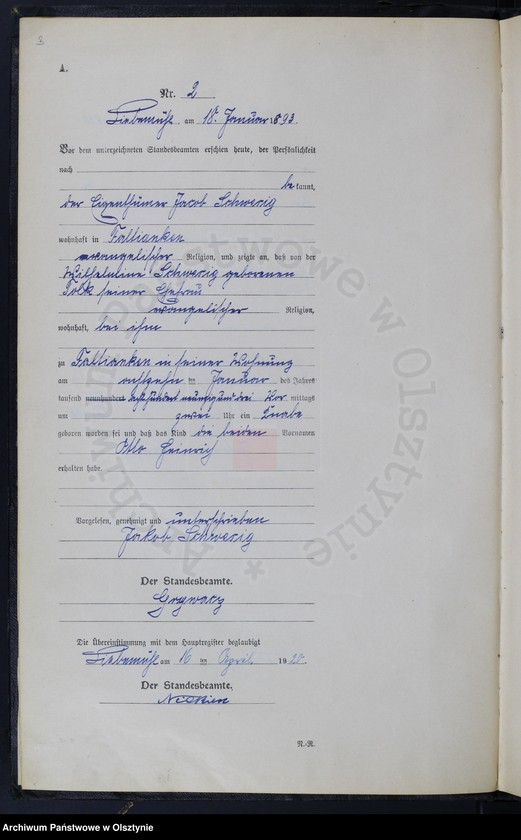 3
A.
Nr. 2
Liebemühl am 18. Januar 1893.
Vor dem unterzeichneten Standesbeamten erschien heute, der Persönlichkeit
nach
bekannt,
der Eigenthümer Jacob Schwesig
wohnhaft in Taltianken
evangelischer Religion, und zeigte an, daß von der
Wilhelmine Schwesig geborenen
Volk seiner Ehefrau
evangelischer Religion,
wohnhaft, bei ihm
zu Taltianken in seiner Wohnung
am achtzehn ten Januar des Jahres
tausend neunhundert achthundert neunzig und drei Vor mittags
um zwei Uhr ein Knabe
geboren worden sei und daß das Kind die beiden Vornamen
Otto Heinrich
erhalten habe.
Vorgelesen, genehmigt und unterschrieben
Jakob Schwesig
Der Standesbeamte.
Die Übereinstimmung mit dem Hauptregister beglaubigt
Liebemühl am 16 ten April 19
Der Standesbeamte.
N./R.
Archiwum Państwowe w Olsztynie
* Archiwum Państwowe w Olsztynie